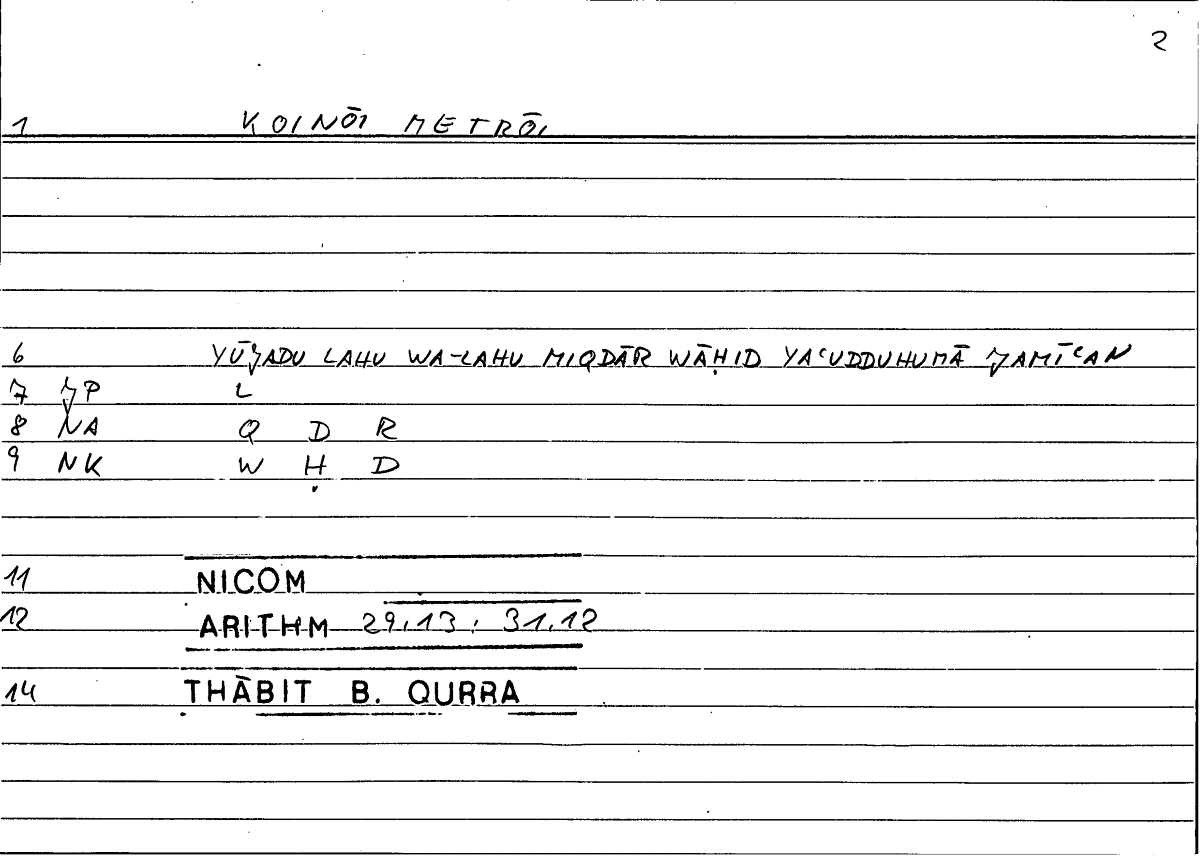 2
1 KOINŌI METRŌI
6 YŪJADU LAHU WA-LAHU MIQDĀR WĀḤID YAʿUDDUHUMĀ JAMĪʿAN
7 JP L
8 NA Q D R
9 NK W Ḥ D
11 NICOM
12 ARITHM 29.13 : 31.12
14 THĀBIT B. QURRA